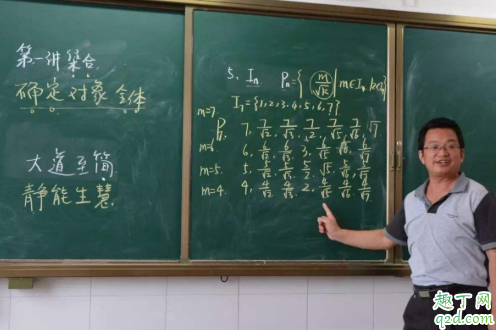 第一讲 集合
确定对象全体
大道至简
静能生慧
5、In Pn={m/√k | m∈In, k∈In}
I7={1,2,3,4,5,6,7}
m=7 P7 7, 7/√2, 7/√3, 7/2, 7/√5, 7/√6, √7
m=6 6, 6/√2, 6/√3, 3, 6/√5, 6/√6, 6/√7
m=5. 5, 5/√2, 5/√3, 5/2, √5, 5/√6, 5/√7
m=4. 4, 4/√2, 4/√3, 2, 4/√5, 4/√6, 4/√7
趣丁网
q2d.com